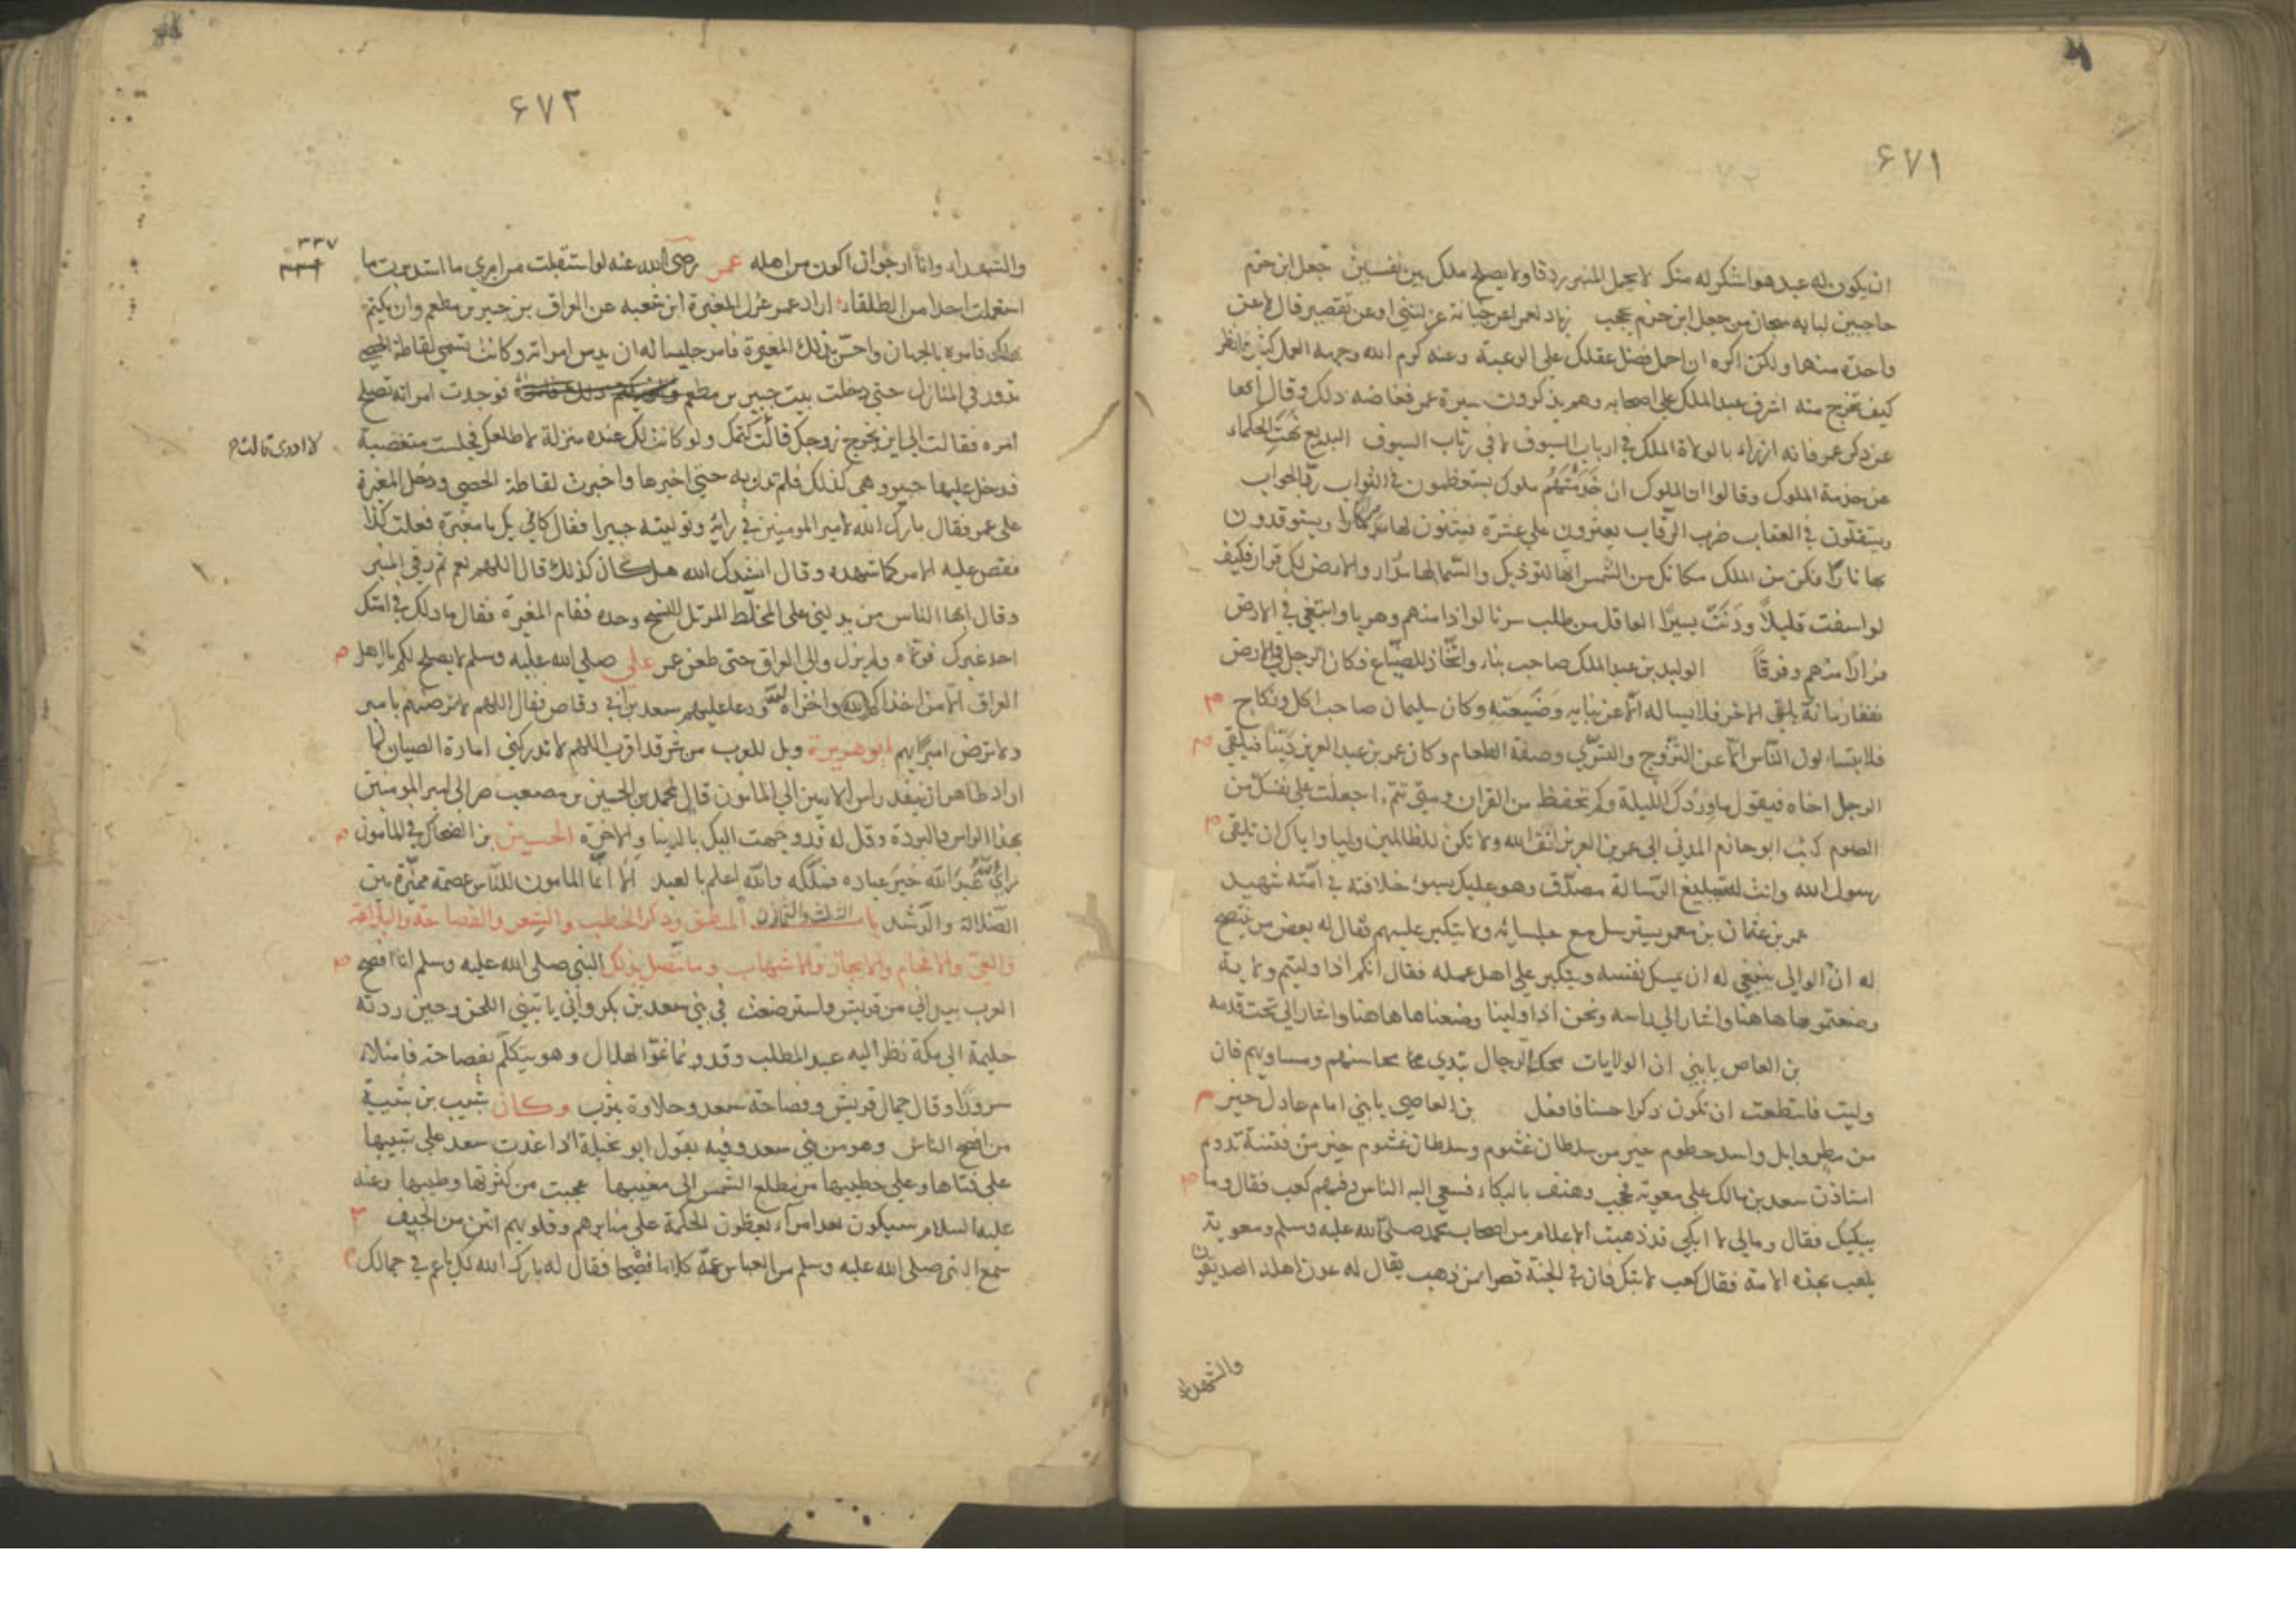 ٦٧١
ان يكون له عبد هو اشكر له منك لا يحمل المنبر ردفا ولا يصلح ملك بين نفسين جعل ابن حزم
حاجبين لبابه سبحان من جعل ابن حزم يحجب زياد لعمر اعن خيانة عزلتني او عن تقصير قال لا عن
واحدة منها ولكن اكره ان احمل فضل عقلك على الرعية وعنه كرم الله وجهه العمل كيف فانظر
كيف تخرج منه اشرف عبد الملك على اصحابه وهم يذكرون سيرة عمر فغاضه ذلك وقال ايها
عن ذكر عمر فانه ازراء بالولاة الملك في ارباب السيوف لا في رباب السيوف البديع نهت الحكماء
عن خدمة الملوك وقالوا ان الملوك ان خدمتهم ملوك يستعظمون في الثواب رد الجواب
ويستقلون في العقاب ضرب الرقاب يعثرون على عثرة فيبنون لها منارا ويستوقدون
بها نارا فكن من الملك مكانك من الشمس انها لتوذيك والسما لها مدار والارض لك قرار فكيف
لو اسفت قليلا ودنت يسيرا العاقل من طلب سربا لواذا منهم وهربا وابتغى في الارض
فرارا منهم وفرقا الوليد بن عبد الملك صاحب بناء واتخاذ للضياع فكان الرجل في الارض
في زمانه يلقى الاخر فلا يساله الا عن بنايه وضيعته وكان سليمان صاحب اكل ونكاح
فلا يتساءلون الناس الا عن التزوج والتسري وصفة الطعام وكان عمر بن عبد العزيز دينا فيلقى
الرجل اخاه فيقول ما وردك الليلة وكم تحفظ من القران ومتى تختم اجعلت على نفسك من
الصوم كتب ابو حازم المدني الى عمر بن العزيز اتق الله ولا تكن للظالمين وليا واياك ان تلقى
رسول الله وانت لتبليغ الرسالة مصدق وهو عليك بسوء خلافته في امته شهيد
عمر بن عثمان بن معمر يسترسل مع جلسائه ولا يتكبر عليهم فقال له بعض من ينصح
له ان الوالي ينبغي له ان يمسك نفسه ويتكبر على اهل عمله فقال انكم اذا وليتم ولاية
وضعتموها هاهنا واشار الى راسه ونحن اذا ولينا وضعناها هاهنا واشار الى تحت قدمه
بن العاص يا بني ان الولايات محك الرجال تبدي محاسنهم ومساويهم فان
وليت فاستطعت ان تكون ذكرا حسنا فافعل بن العاصي يا بني امام عادل خير
من مطر وابل واسد حطوم خير من سلطان غشوم وسلطان غشوم خير من فتنة تدوم
استاذن سعد بن مالك على معوية فحجب وهتف بالبكاء فسعى اليه الناس وفيهم كعب فقال وما
يبكيك فقال ومالي لا ابكي قد ذهبت الاعلام من اصحاب محمد صلى الله عليه وسلم ومعوية
يلعب بهذه الامة فقال كعب لا تبك فان في الجنة قصرا من ذهب يقال له عدن اهله الصديقون
والشهداء
٦٧٢
٣٣٧
والشهداء وانا ارجو ان اكون من اهله عمر رضي الله عنه لو استقبلت من امري ما استدبرت ما
استعملت احدا من الطلقاء اراد عمر عزل المغيرة ابن شعبة عن العراق بن جبير بن مطعم وان يكتم
ذلك فامره بالجهاز واحس بذلك المغيرة فامر جليسا له ان يدس امراته وكانت تسمى لقاطة الحصى
تدور في المنازل حتى دخلت بيت جبير بن مطعم فوجدت امراته تصلح
امره فقالت الى اين يخرج زوجك قالت كتمك ولو كانت لك عنده منزلة لاطلعك فجلست متغضبة
لا ادري قالت
فدخل عليها جبير وهي كذلك فلم تزل به حتى اخبرها واخبرت لقاطة الحصى ودخل المغيرة
على عمر فقال بارك الله لامير المومنين في رايه وتوليته جبيرا فقال كاني بك يا مغيرة فعلت كذا
فقص عليه الامر كما شهده وقال انشدك الله هل كان كذلك قال اللهم نعم ثم رقي المنبر
وقال ايها الناس من يدلني على المخلط المزيل النسيج وحده فقام المغيرة فقال ما ذلك في امتك
احد غيرك فولاه ولم يزل والي العراق حتى طعن عمر علي صلى الله عليه وسلم لا يصلح لكم يا اهل
العراق الا من اخذاكم الله واخزاه ودعا عليهم سعد بن ابي وقاص فقال اللهم لا ترضهم بامير
ولا ترض اميرا بهم ابو هريرة ويل للعرب من شر قد اقرب اللهم لا تدركني امارة الصبيان لما
اراد طاهر ان ينفذ راس الامين الى المامون قال لمحمد بن الحسين بن مصعب صر الى امير المومنين
بهذا الراس والبردة وقل له قد وجهت اليك بالدنيا والاخرة الحسين بن الضحاك في المامون
راى الله عبد الله خير عباده فملكه والله اعلم بالعبد الا انما المامون للناس عصمة مميزة بين
الضلالة والرشد باب الثلث والثمانون المنطق وذكر الخطب والشعر والفصاحة والبلاغة
والعي والافحام والايجاز والاسهاب وما يتصل بذلك النبي صلى الله عليه وسلم انا افصح
العرب بيد اني من قريش واسترضعت في بني سعد بن بكر واني ياتيني اللحن وحين ردته
حليمة الى مكة نظر اليه عبد المطلب وقد نما نمو الهلال وهو يتكلم بفصاحة فامتلاء
سرورا وقال جمال قريش وفصاحة سعد وحلاوة يثرب وكان شبيب بن شيبة
من افصح الناس وهو من بني سعد وفيه يقول ابو نخيلة اذا غدت سعد على شبيبها
على فتاها وعلى خطيبها من مطلع الشمس الى مغيبها عجبت من كثرتها وطيبها وعنه
عليه السلام سيكون بعدي امراء يعظون الحكمة على منابرهم وقلوبهم انتن من الجيف
سمع النبي صلى الله عليه وسلم من العباس عمه كلاما فصيحا فقال له بارك الله لك يا عم في جمالك